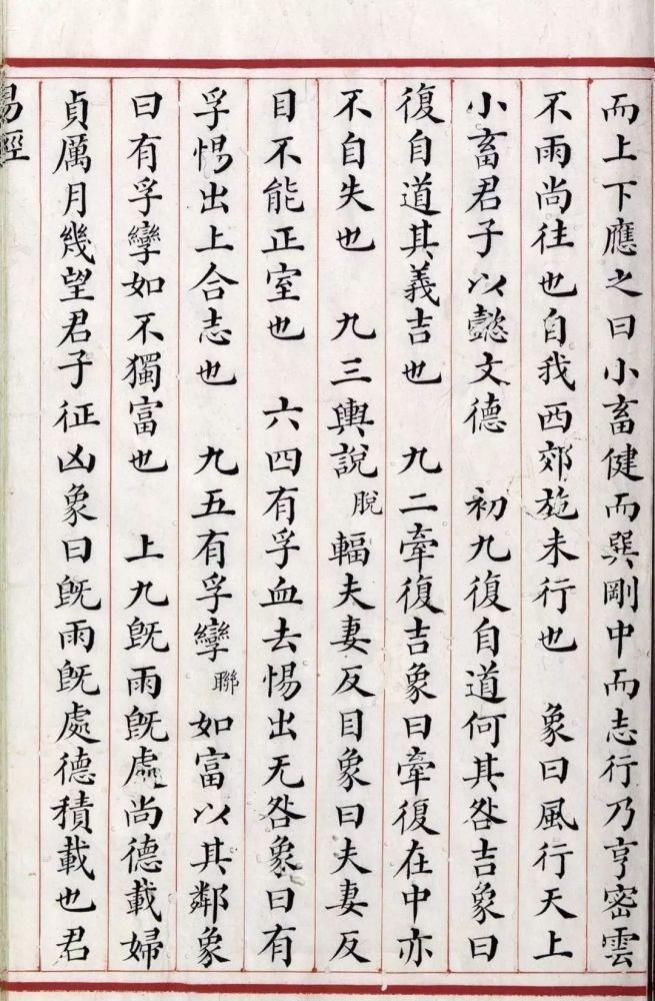 而上下應之曰小畜健而巽剛中而志行乃亨密雲
不雨尚往也自我西郊施未行也　象曰風行天上
小畜君子以懿文德　初九復自道何其咎吉象曰
復自道其義吉也　九二牽復吉象曰牽復在中亦
不自失也　九三輿說脫輻夫妻反目象曰夫妻反
目不能正室也　六四有孚血去惕出无咎象曰有
孚惕出上合志也　九五有孚攣聯如富以其鄰象
曰有孚攣如不獨富也　上九旣雨旣處尚德載婦
貞厲月幾望君子征凶象曰旣雨旣處德積載也君
易經